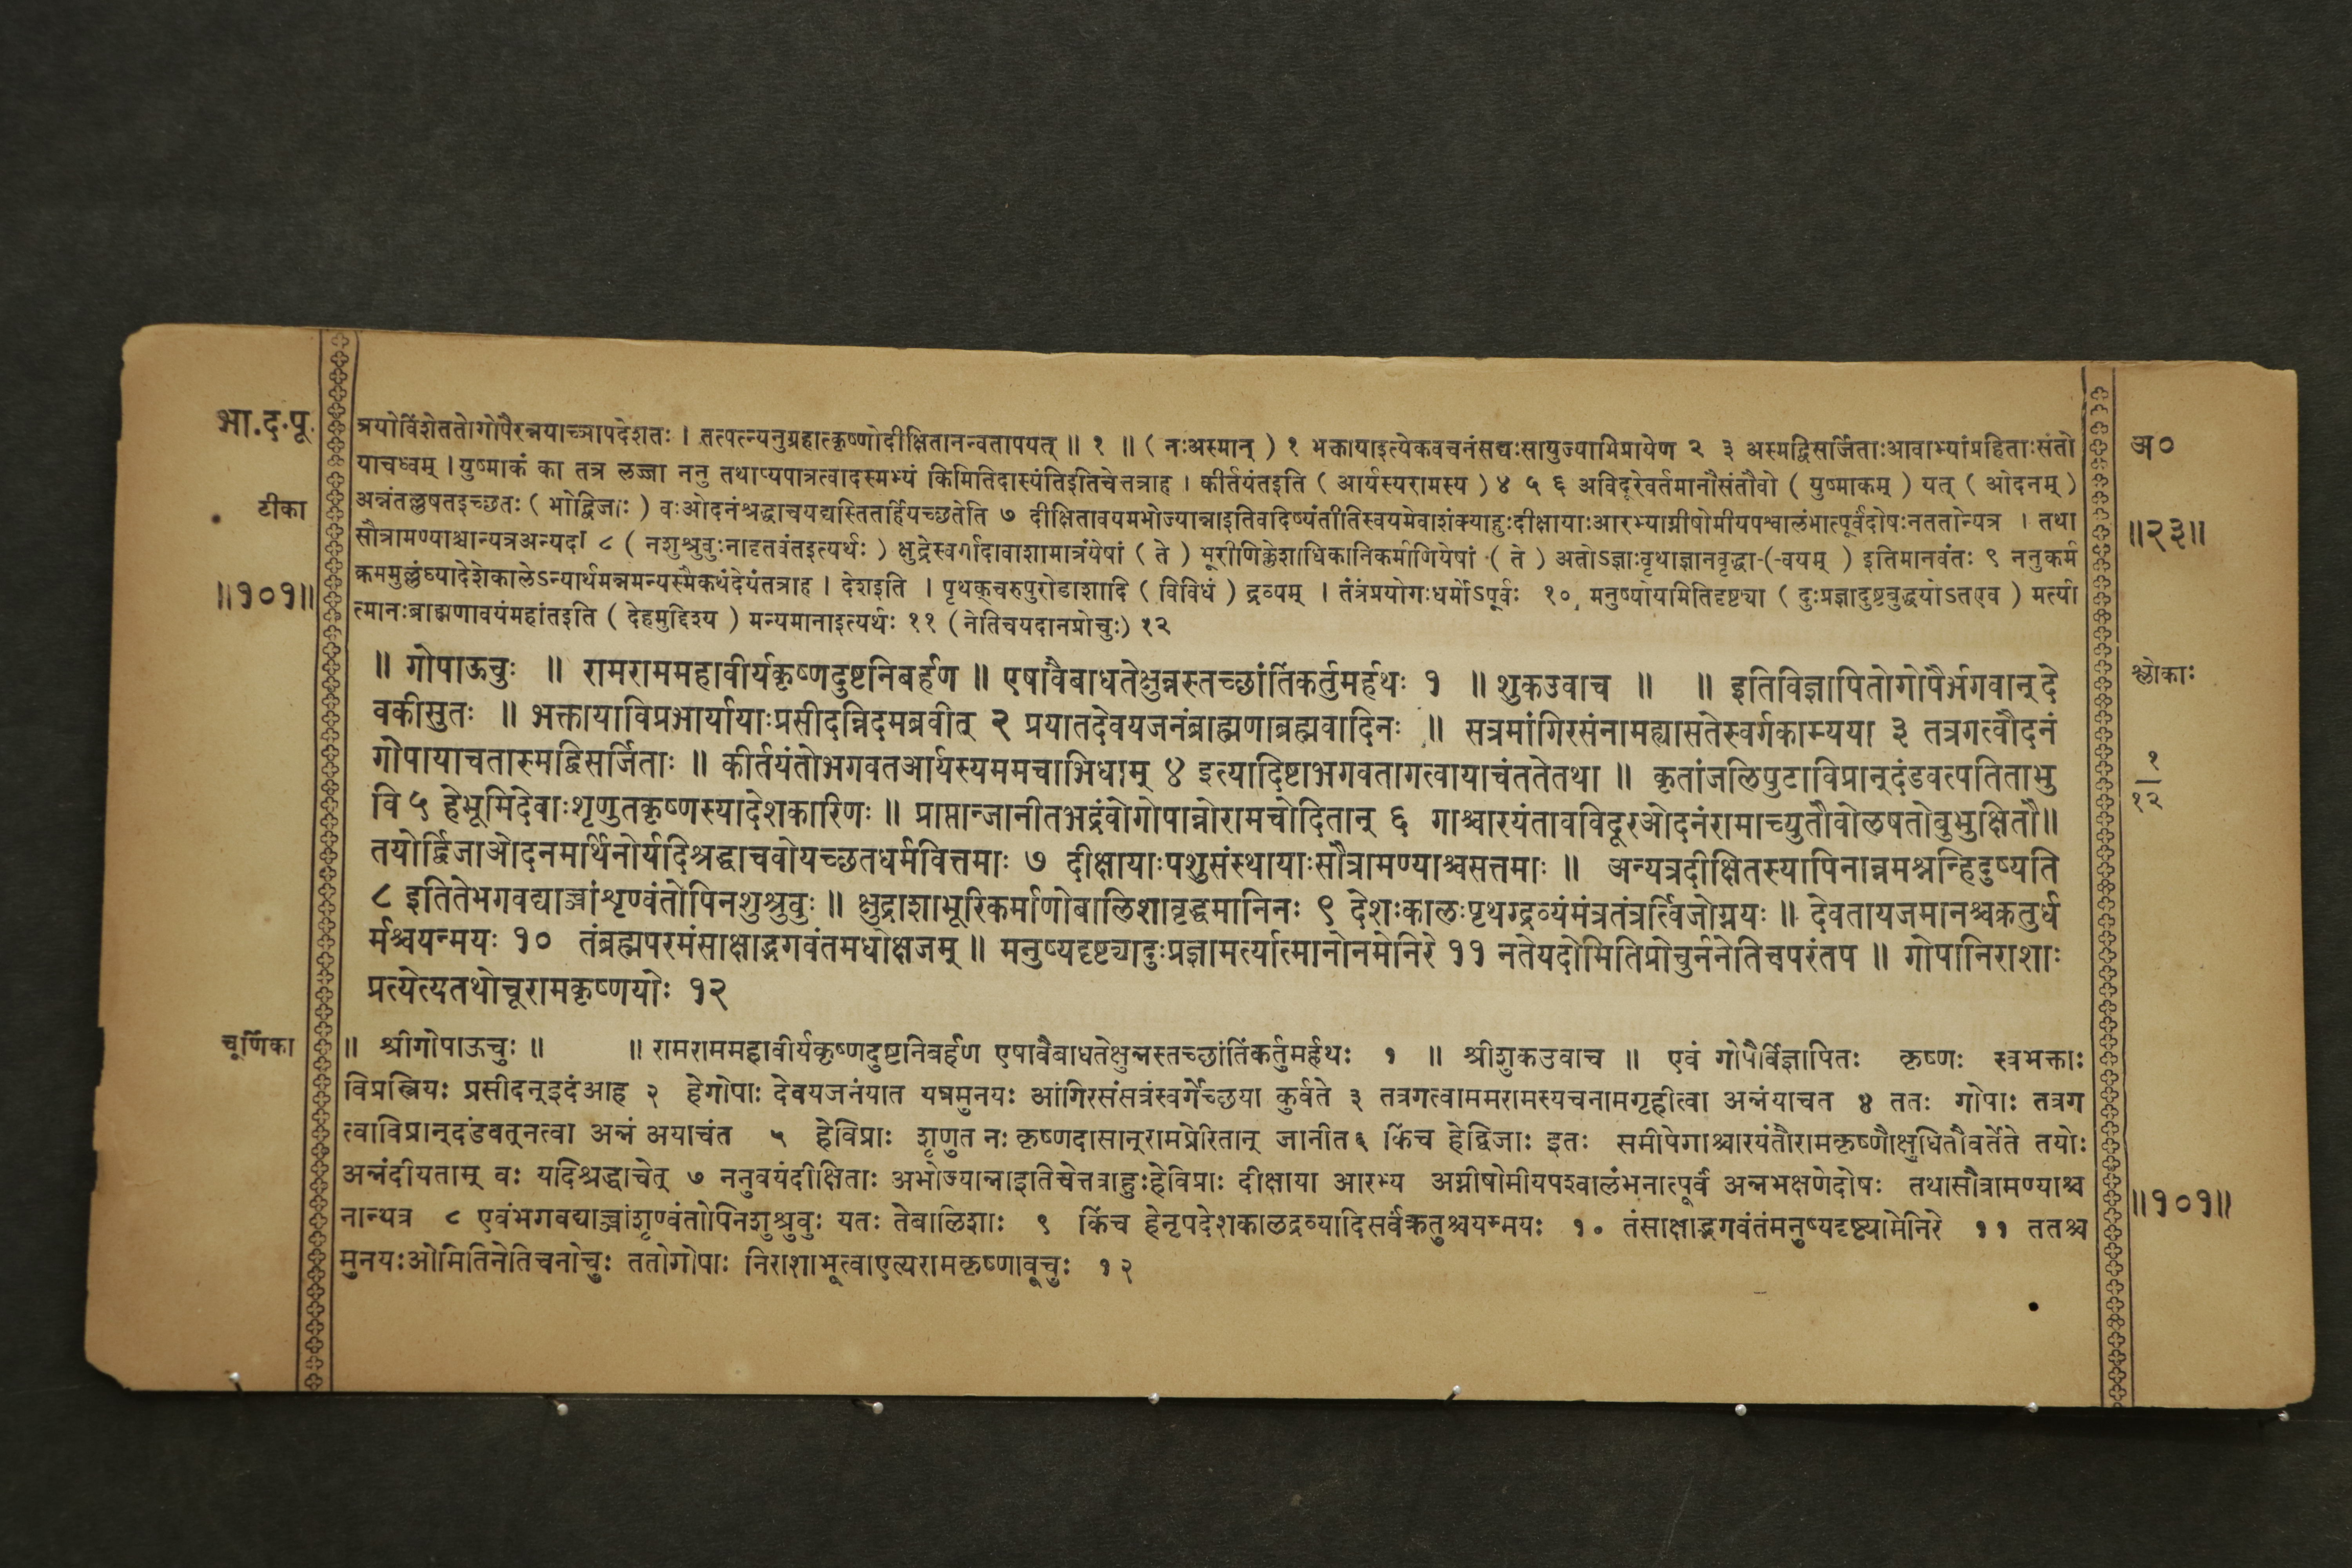 भा.द.पू.
त्रयोविंशेततोगोपैरन्नयाच्ञापदेशतः । तत्पत्न्यनुग्रहात्कृष्णोदीक्षितानन्वतापयत् ॥ १ ॥ ( नःअस्मान् ) १ भक्तायाइत्येकवचनंसद्यःसायुज्याभिप्रायेण २ ३ अस्मद्विसर्जिताःआवाभ्यांप्रहिताःसंतो
अ०
याचध्वम् । युष्माकं का तत्र लज्जा ननु तथाप्यपात्रत्वादस्मभ्यं किमितिदास्यंतिइतिचेत्तत्राह । कीर्तयंतइति ( आर्यस्यरामस्य ) ४ ५ ६ अविदूरेवर्तमानौसंतौवो ( युष्माकम् ) यत् ( ओदनम् )
टीका
अन्नंतल्लषतइच्छतः ( भोद्विजाः ) वःओदनंश्रद्धाचयद्यस्तितर्हियच्छतेति ७ दीक्षितावयमभोज्यान्नाइतिवदिष्यंतीतिस्वयमेवाशंक्याहुःदीक्षायाःआरभ्याग्नीषोमीयपश्वालंभात्पूर्वंदोषःनततोन्यत्र । तथा
॥२३॥
सौत्रामण्याश्चान्यत्रअन्यदा ८ ( नशुश्रुवुःनादृतवंतइत्यर्थः ) क्षुद्रेस्वर्गादावाशामात्रंयेषां ( ते ) भूरीणिक्लेशाधिकानिकर्माणियेषां ( ते ) अतोऽज्ञाःवृथाज्ञानवृद्धा-(-वयम् ) इतिमानवंतः ९ ननुकर्म
॥१०१॥
क्रममुल्लंघ्यादेशेकालेऽन्यार्थमन्नमन्यस्मैकथंदेयंतत्राह । देशइति । पृथक्चरुपुरोडाशादि ( विविधं ) द्रव्यम् । तंत्रंप्रयोगःधर्मोऽपूर्वः १० मनुष्योयमितिदृष्ट्या ( दुःप्रज्ञादुष्टबुद्धयोऽतएव ) मर्त्या
त्मानःब्राह्मणावयंमहांतइति ( देहमुद्दिश्य ) मन्यमानाइत्यर्थः ११ ( नेतिचयदानप्रोचुः) १२
॥ गोपाऊचुः ॥ रामराममहावीर्यकृष्णदुष्टनिबर्हण ॥ एषावैबाधतेक्षुन्नस्तच्छांतिंकर्तुमर्हथः १ ॥ शुकउवाच ॥ ॥ इतिविज्ञापितोगोपैर्भगवान् दे
श्लोकाः
वकीसुतः ॥ भक्तायाविप्रभार्यायाःप्रसीदन्निदमब्रवीत् २ प्रयातदेवयजनंब्राह्मणाब्रह्मवादिनः ॥ सत्रमांगिरसंनामह्यासतेस्वर्गकाम्यया ३ तत्रगत्वौदनं
गोपायाचतास्मद्विसर्जिताः ॥ कीर्तयंतोभगवतआर्यस्यममचाभिधाम् ४ इत्यादिष्टाभगवतागत्वायाचंततेतथा ॥ कृतांजलिपुटाविप्रान् दंडवत्पतिताभु
१
१२
वि ५ हेभूमिदेवाःशृणुतकृष्णस्यादेशकारिणः ॥ प्राप्तान्जानीतभद्रंवोगोपान्नोरामचोदितान् ६ गाश्चारयंतावविदूरओदनंरामाच्युतौवोलषतोबुभुक्षितौ॥
तयोर्द्विजाओदनमर्थिनोर्यदिश्रद्धाचवोयच्छतधर्मवित्तमाः ७ दीक्षायाःपशुसंस्थायाःसौत्रामण्याश्चसत्तमाः ॥ अन्यत्रदीक्षितस्यापिनान्नमश्नन्हिदुष्यति
८ इतितेभगवद्याच्ञांशृण्वंतोपिनशुश्रुवुः ॥ क्षुद्राशाभूरिकर्माणोबालिशावृद्धमानिनः ९ देशःकालःपृथग्द्रव्यंमंत्रतंत्रर्त्विजोग्नयः ॥ देवतायजमानश्चक्रतुर्ध
र्मश्चयन्मयः १० तंब्रह्मपरमंसाक्षाद्भगवंतमधोक्षजम् ॥ मनुष्यदृष्ट्यादुःप्रज्ञामर्त्यात्मानोनमेनिरे ११ नतेयदोमितिप्रोचुर्ननेतिचपरंतप ॥ गोपानिराशाः
प्रत्येत्यतथोचूरामकृष्णयोः १२
चूर्णिका
॥ श्रीगोपाऊचुः ॥ ॥ रामराममहावीर्यकृष्णदुष्टनिबर्हण एषावैबाधतेक्षुन्नस्तच्छांतिंकर्तुमर्हथः १ ॥ श्रीशुकउवाच ॥ एवं गोपैर्विज्ञापितः कृष्णः स्वभक्ताः
विप्रस्त्रियः प्रसीदन्इदंआह २ हेगोपाः देवयजनंयात यत्रमुनयः आंगिरसंसत्रंस्वर्गेच्छया कुर्वते ३ तत्रगत्वाममरामस्यचनामगृहीत्वा अन्नंयाचत ४ ततः गोपाः तत्रग
त्वाविप्रान्दंडवत्नत्वा अन्नं अयाचंत ५ हेविप्राः शृणुत नः कृष्णदासान्रामप्रेरितान् जानीत६ किंच हेद्विजाः इतः समीपेगाश्चारयंतौरामकृष्णौक्षुधितौवर्तेते तयोः
अन्नंदीयताम् वः यदिश्रद्धाचेत् ७ ननुवयंदीक्षिताः अभोज्यान्नाइतिचेत्तत्राहुःहेविप्राः दीक्षाया आरभ्य अग्नीषोमीयपश्वालंभनात्पूर्वं अन्नभक्षणेदोषः तथासौत्रामण्याश्च
॥१०१॥
नान्यत्र ८ एवंभगवद्याच्ञांशृण्वंतोपिनशुश्रुवुः यतः तेबालिशाः ९ किंच हेनृपदेशकालद्रव्यादिसर्वंक्रतुश्चयन्मयः १० तंसाक्षाद्भगवंतंमनुष्यदृष्ट्यामेनिरे ११ ततश्च
मुनयःओमितिनेतिचनोचुः ततोगोपाः निराशाभूत्वाएत्यरामकृष्णावूचुः १२